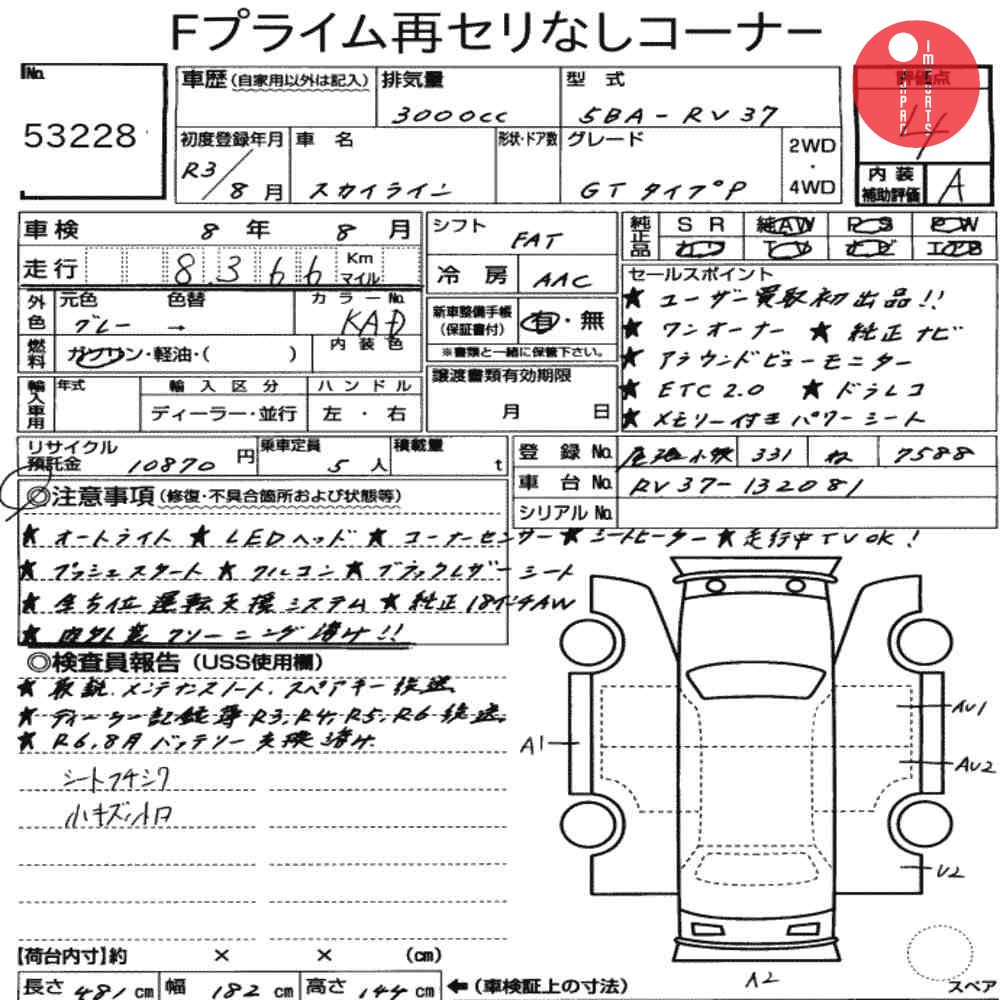 Fプライム再セリなしコーナー
JAPAN IMPORTS
No. 53228
車歴(自家用以外は記入) 排気量 3000cc 型式 5BA-RV37 評価点 4
初度登録年月 R3/8月 車名 スカイライン 形状・ドア数 グレード GT タイプP 2WD・4WD 内装補助評価 A
車検 8年 8月 シフト FAT 純正品 SR 純AW PS PW
走行 8,366 Km マイル 冷房 AAC エアB
外色 元色 グレー → 色替 カラーNo. KAD 新車整備手帳(保証書付) 有・無
※書類と一緒に保管下さい。
燃料 ガソリン・軽油・( ) 内装色
輸入車用 年式 輸入区分 ディーラー・並行 ハンドル 左・右 譲渡書類有効期限 月 日
セールスポイント
★ ユーザー買取初出品!!
★ ワンオーナー ★ 純正ナビ
★ アラウンドビューモニター
★ ETC2.0 ★ ドラレコ
★ メモリー付きパワーシート
リサイクル預託金 10870円 乗車定員 5人 積載量 t
登録No. 尾張小牧 331 ね 7588
車台No. RV37-132081
シリアルNo.
◎注意事項(修復・不具合箇所および状態等)
★ オートライト ★ LEDヘッド ★ コーナーセンサー ★ シートヒーター ★ 走行中TVOK!
★ プッシュスタート ★ クルコン ★ ブラックレザーシート
★ 全方位運転支援システム ★ 純正18インチAW
★ 内外装クリーニング済み!!
◎検査員報告(USS使用欄)
★ 取説、メンテナンスノート、スペアキー後送
★ ディーラー記録簿R3,R4,R5,R6後送
★ R6,8月バッテリー交換済み
シートフキシワ
小キズ小凹
A1
AU1
AU2
U2
A2
スペア
【荷台内寸】約 × × (cm)
長さ 481cm 幅 182cm 高さ 144cm ←(車検証上の寸法)